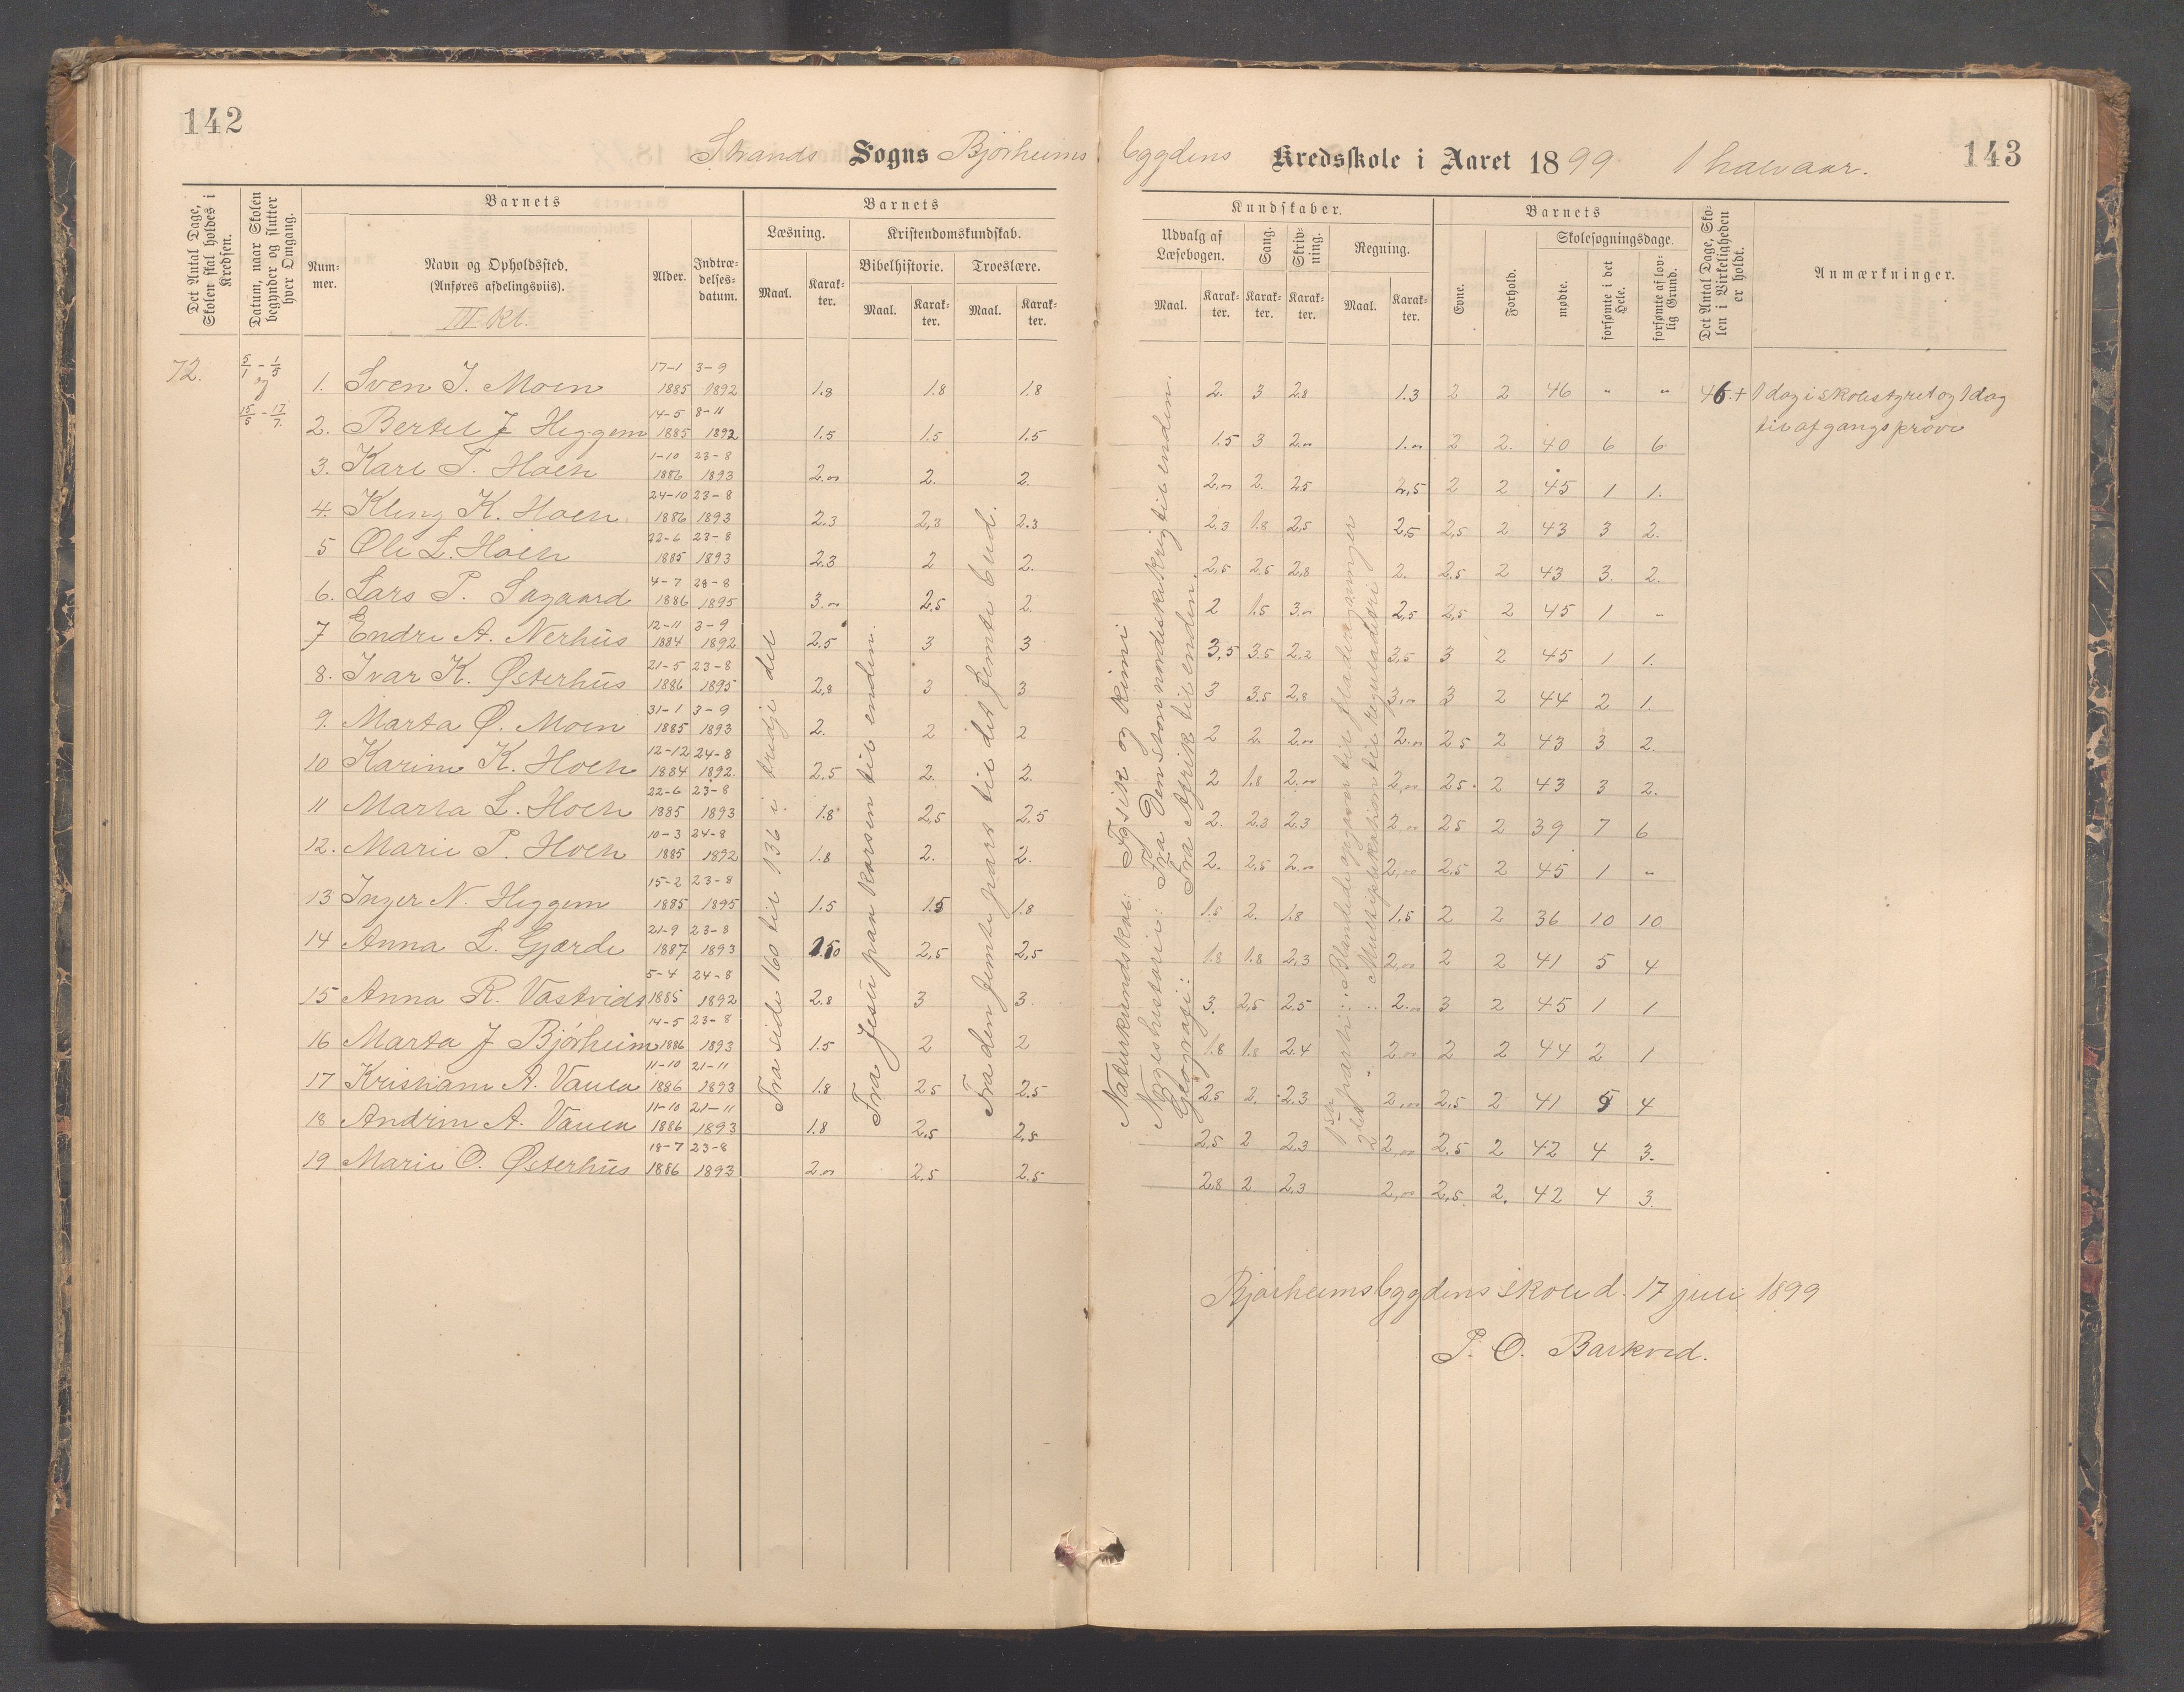 142
Strands Sogns Bjørheims
bygdens Kredsskole i Aaret 1899 1 halvaar.
143
Det Antal Dage, Skolen skal holdes i Kredsen.
Datum, naar Skolen begynder og slutter hver Omgang.
Barnets
Nummer.
Navn og Opholdssted.
(Anføres afdelingsviis).
III Kl.
Alder.
Indtrædelsesdatum.
Barnets
Læsning.
Maal.
Karakter.
Kristendomskundskab.
Bibelhistorie.
Maal.
Karakter.
Troeslære.
Maal.
Karakter.
Kundskaber.
Udvalg af Læsebogen.
Maal.
Karakter.
Sang.
Karakter.
Skrivning.
Karakter.
Regning.
Maal.
Karakter.
Barnets
Evne.
Forhold.
Skolesøgningsdage.
mødte.
forsømte i det Hele.
forsømte af lovlig Grund.
Det Antal Dage, Skolen i Virkeligheden er holdt.
Anmærkninger.
72.
5/1 - 1/5
og
15/5 - 17/7.
1. Sven J. Moen 17-1 1885 3-9 1892 1.8 1.8 1.8 2. 3 2.8 1.3 2 2 46 " " 46.+ 1 dag i skolestyret og 1 dag
til afgangsprøve
2. Bertel J Heggem 14-5 1885 8-11 1892 1.5 1.5 1.5 1.5 3 2.00 1.00 2 2. 40 6 6
3. Karl T. Hoen 1-10 1886 23-8 1893 2.00 2. 2. 2.00 2. 2.5 2,5 2 2 45 1 1.
4. Kleng K. Hoen 24-10 1886 23-8 1893 2.3 2,3 2.3 2.3 1.8 2,5 2,5 2,5 2 43 3 2.
5 Ole L. Hoen 22-6 1885 23-8 1893 2.3 2 2. 2,5 2.5 2,8 2. 2.5 2 43 3. 2.
6. Lars P. Sagaard 4-7 1886 28-8 1895 3.00 2.5 2. 2 1.5 3.00 2,5 2,5 2 45 1 -
7 Endre A. Nerhus 12-11 1884 3-9 1892 2.5 3 3 3,5 3.5 2.2 3,5 3 2 45 1 1.
8. Ivar K. Østerhus 21-5 1886 23-8 1895 2,8 3 3 3 3.5 2.8 3,00 3 2 44 2 1.
9. Marta Ø. Moen 31-1 1885 3-9 1893 2. 2 2 2 2. 2.00 2.00 2.5 2 43 3 2.
10 Karine K. Hoen 12-12 1884 24-8 1892. 2.5 2. 2. 2 1.8 2.00 2,00 2.5 2 43 3 2.
11 Marta L. Hoen 22-6 1885 23-8 1893 1.8 2,5 2.5 2. 2.3 2.3 2,00 2.5 2 39 7 6
12. Marie P. Hoen 10-3 1885 24-8 1892 1.8 2. 2. 2. 2,5 2.00 2,00 2.5 2 45 1 "
13 Inger N. Heggem 15-2 1885 23-8 1895 1.5 1.5 1.8 1.5 2. 1.8 1.5 2 2 36 10 10
14 Anna L. Gjærde 21-9 1887 23-8 1893 2,5 2,5 1.8 1.8 2.3 2,00 2 2 41 5 4
15 Anna R. Vastvidt 5-4 1885 24-8 1892 2.8 3 3. 3. 2,5 2.5 2.00 3 2 45 1 1
16 Marta J Bjørheim 14-5 1886 23-8 1893 1.5 2 2 1.8 1.8 2.4 2.00 2 2 44 2 1
17 Kristiane A. Vaula 11-10 1886 21-11 1893 1.8 2.5 2.5 2.5 2. 2.3 2,00 2.5 2 41 5 4
18 Andrine A. Vaula 11-10 1886 21-11 1893 1.8 2.5 2,5 2,5 2 2.3 2,00 2.5 2 42 4 3.
19 Marie O. Østerhus 18-7 1886 23-8 1893 2.00 2.5 2.5 2.8 2 2.3 2,00 2,5 2. 42 4 3.
Fra side 160 til 136 i tredje del
Fra Jesu paa korsen til enden.
Fra den femte part til det femte bud.
Naturkundskab: Fysik og kemi
Norgeshistorie: Fra Den stornordiske krig til enden.
Geografi: Fra Afrik til enden.
Blandede opgaver til fladeregninger
Multiplikation til reguladetri
Bjørheimsbygdens skole d. 17 juli 1899
P. O. Barkved.